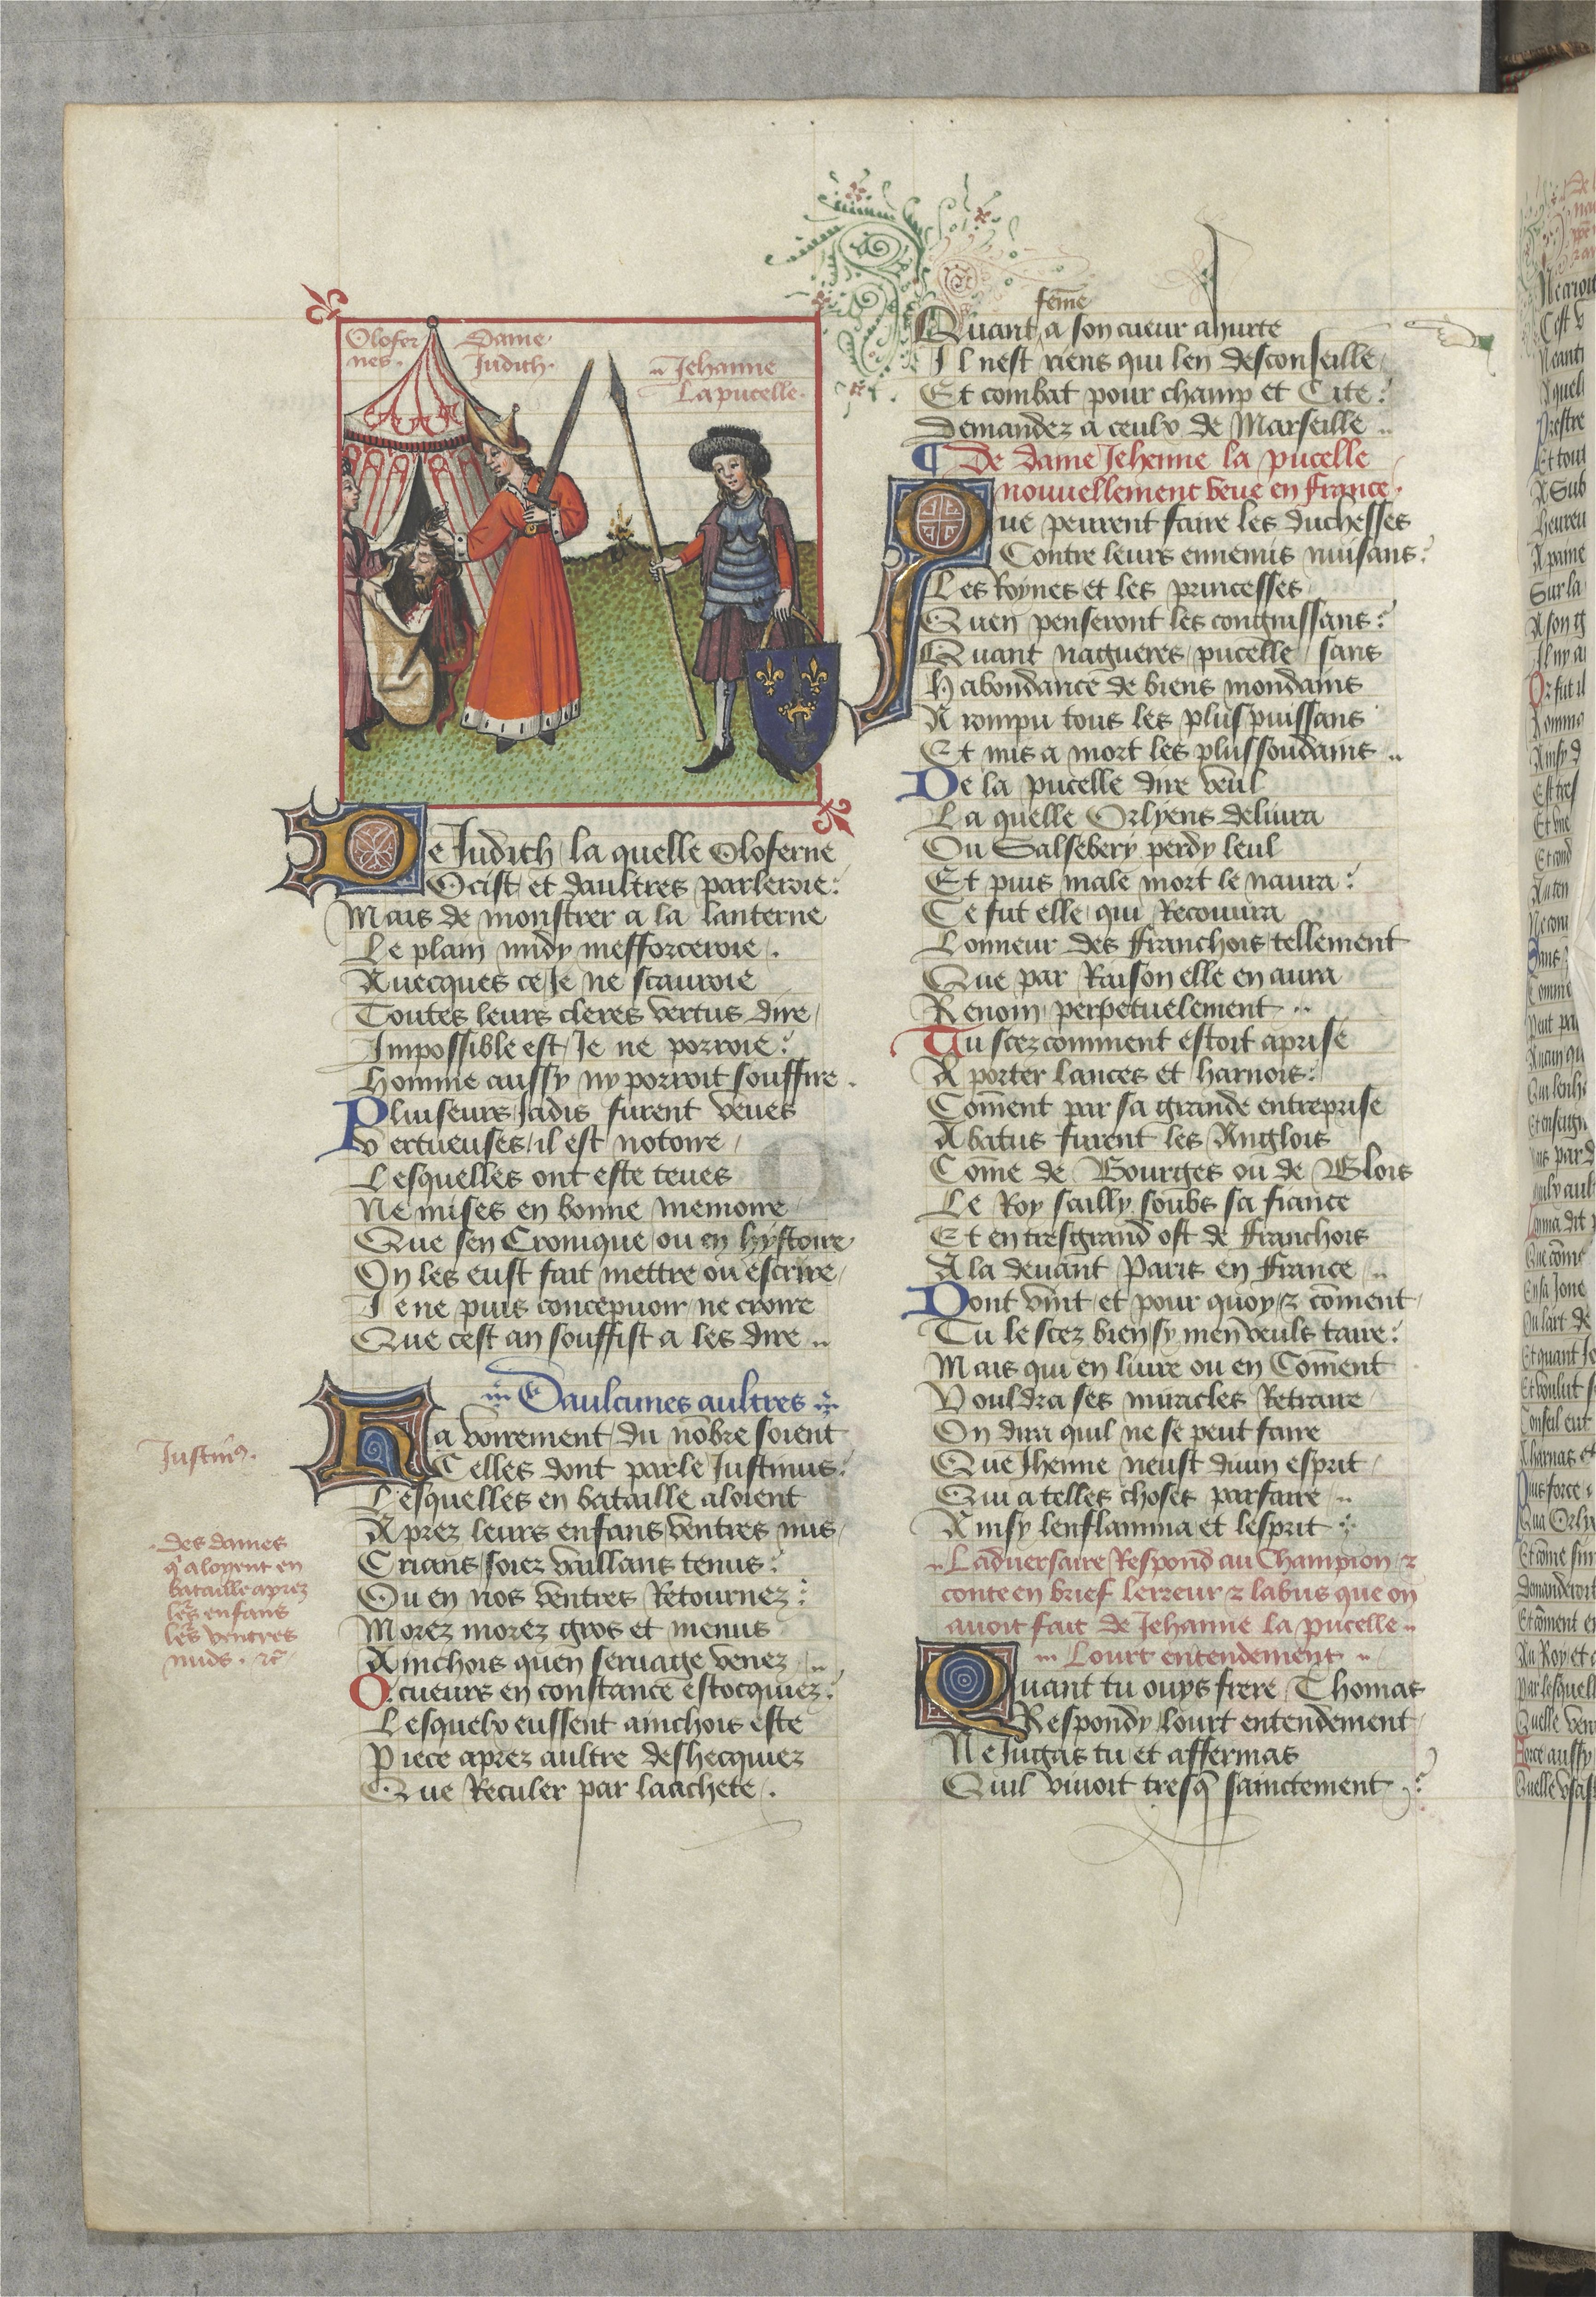 Olofer
nes.
Dame
Judich.
Jehanne
La pucelle.
De Judich la quelle Oloferne
Ocist et daultres parleroie:
Mais de monstrer a la lanterne
Le plain midy mefforceroie.
Auecques ce Je ne scauroie
Toutes leurs cleres vertus dire
Impossible est Je ne porroie:
Homme aussy ny porroit souffire.
Pluiseurs Jadis furent veues
Vertueuses il est notoire
Lesquelles ont este teues
Ne mises en bonne memoire
Que sen Cronique ou en hystoire
On les eust fait mettre ou escrire
Je ne puis concepuoir ne croire
Que cest an souffist a les dire
Daulcunes aultres
Ha voirement du nõbre soient
Celles dont parle Justinus:
Lesquelles en bataille aloient
Aprez leurs enfans ventres nus
Crians soiez vaillans tenus:
Ou en nos ventres Retournez:
Morez morez gros et menus
Ainchois quen seruage venez
O cueurs en constance estocquiez:
Lesquelx eussent ainchois este
Piece aprez aultre deshecquiez
Que Reculer par laachete.
Justin9.
des dames
q aloyent en
bataille aprez
lers enfans
lers ventres
nuds. &c
feme
Quant a son cueur ahurte
Il nest riens qui len desconseille
Et combat pour champ et Cite:
Demandez a ceulx de Marseille
¶ De dame Jehenne la pucelle
nouuellement veue en france.
Que peurent faire les duchesses
Contre leurs ennemis nuisans:
Les Roynes et les princesses
Quen penseront les congnissans:
Quant nagueres pucelle sans
Habondance de biens mondains
A rompu tous les plus puissans
Et mis a mort les plus soudains
De la pucelle dire veul
La quelle Orlyens deliura
Ou Salsebery perdy leul
Et puis male mort le naura:
Ce fut elle qui Recouura
Lonneur des franchois tellement
Que par Raison elle en aura
Renom perpetuelement
Tu scez comment estoit aprise
A porter lances et harnois:
Cõment par sa grande entreprise
Abatus furent les Anglois
Cõme de Bourges ou de Blois
Le Roy sailly soubs sa fiance
Et en tresgrand ost de franchois
Ala deuant Paris en france
Dont vint et pour quoy & cõment
Tu le scez bien sy men veuls taire:
Mais qui en liure ou en Cõment
Vouldra ses miracles Retraire
On dira quil ne se peut faire
Que Jhenne neust diuin esprit
Qui a telles choses parfaire
Ainsy lenflamma et lesprit
Laduersaire Respond au Champion &
conte en brief lerreur & labus que on
auoit fait de Jehanne la pucelle
Lourt entendement
Quant tu ouys frere Thomas
Respondy lourt entendement
Ne Jugas tu et affermas
Quil viuoit tresq̃ sainctement